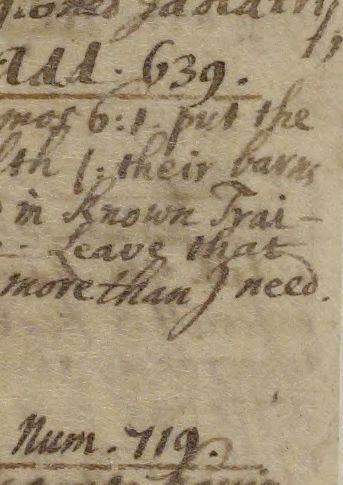 Add. 639.
mos 6:1 put the
lth /: their barns
in known Trai-
Leave that
more than I need.
Num. 719.